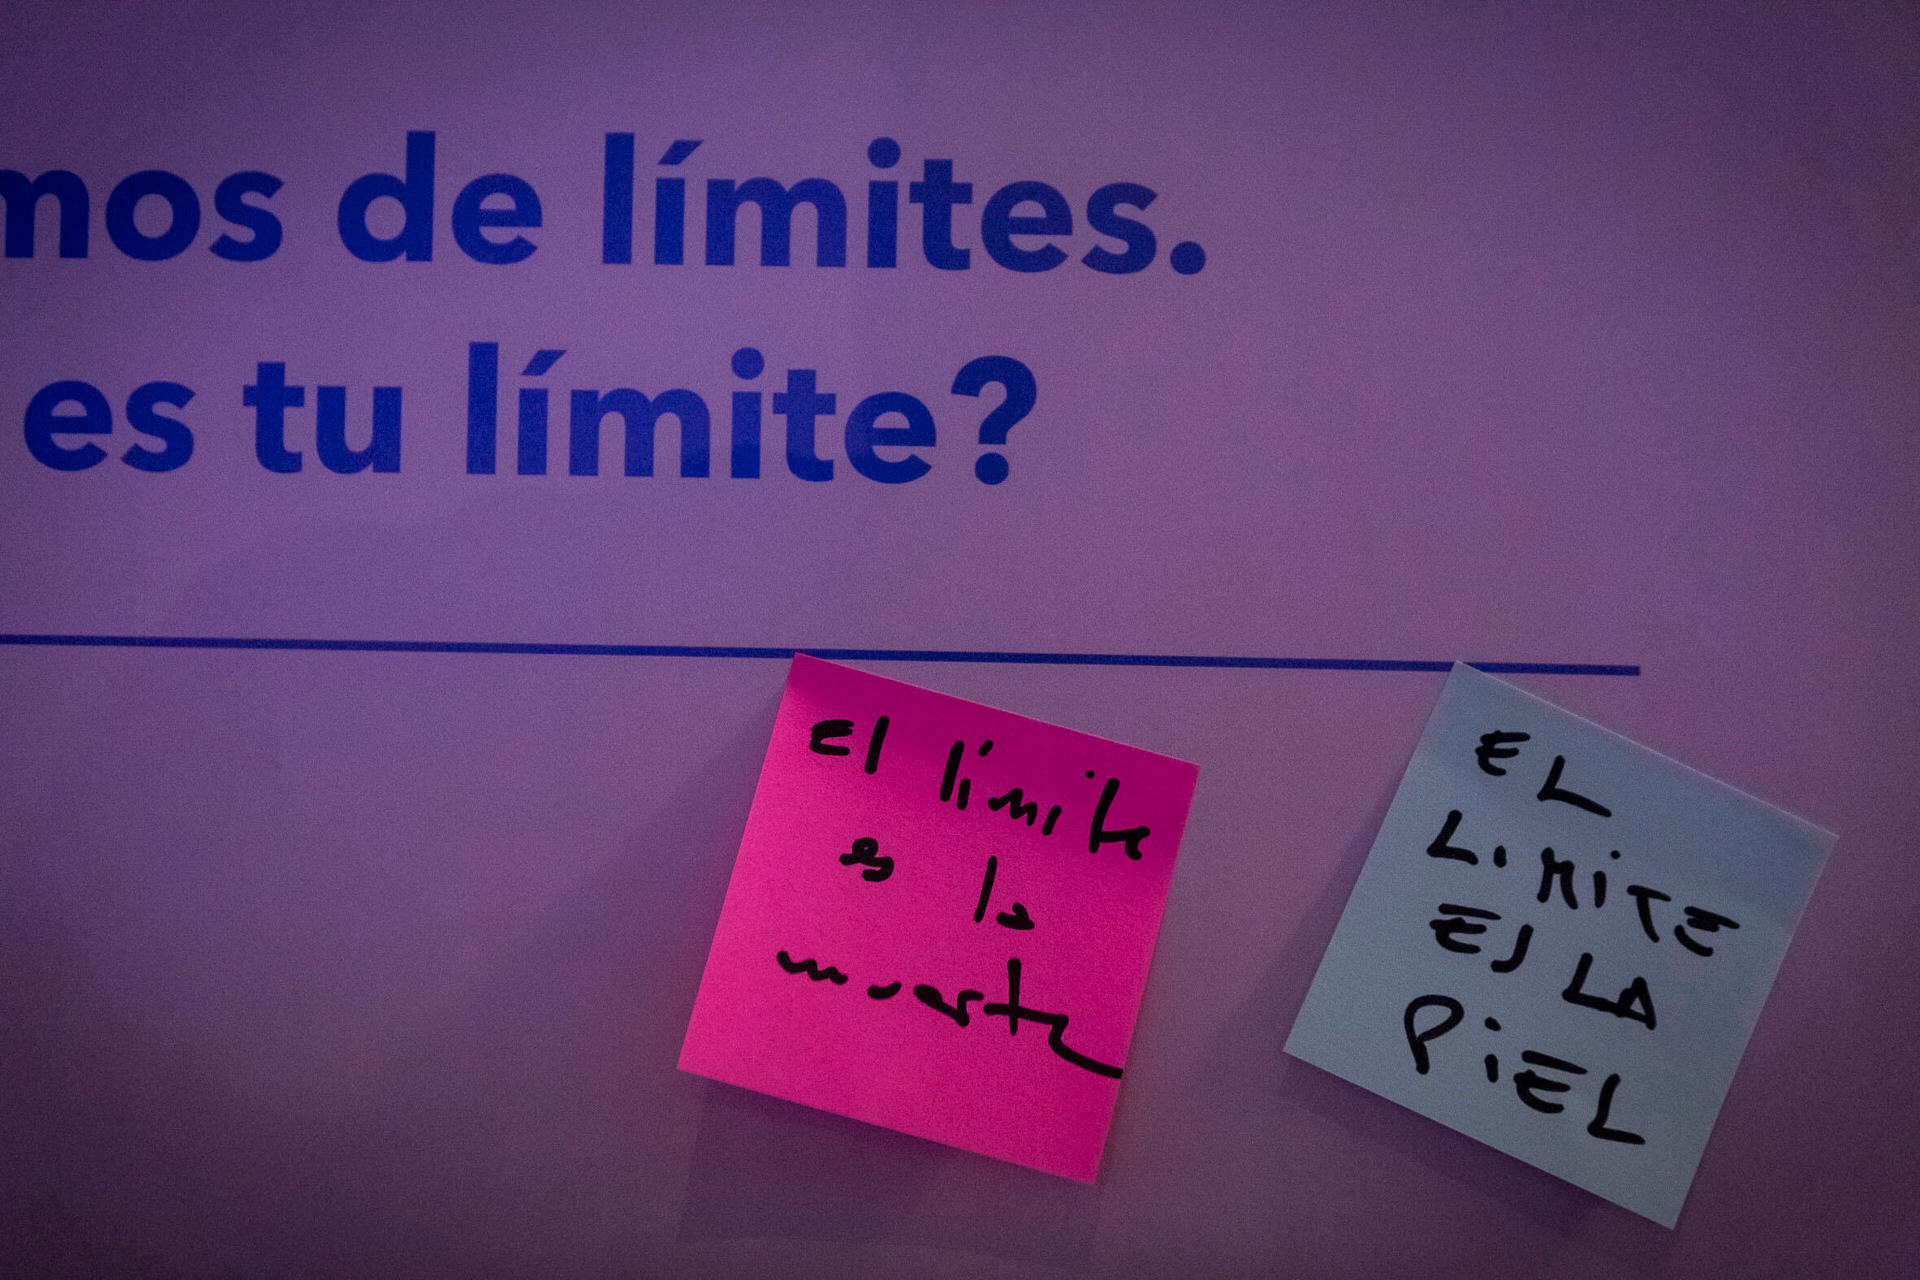 mos de límites.
es tu límite?
El límite
es la
muerte
EL
LIMITE
ES LA
PiEL